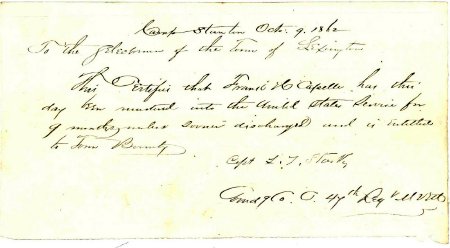 Camp Stanton Oct. 9. 1862
To the Selectmen of the Town of Lexington
This Certifies that Francis H Capelle has this
day been mustered into the United States Service for
9 months, unless sooner discharged and is entitled
to Town Bounty
Capt L. T.
Comdg Co. 47th Regt M V M